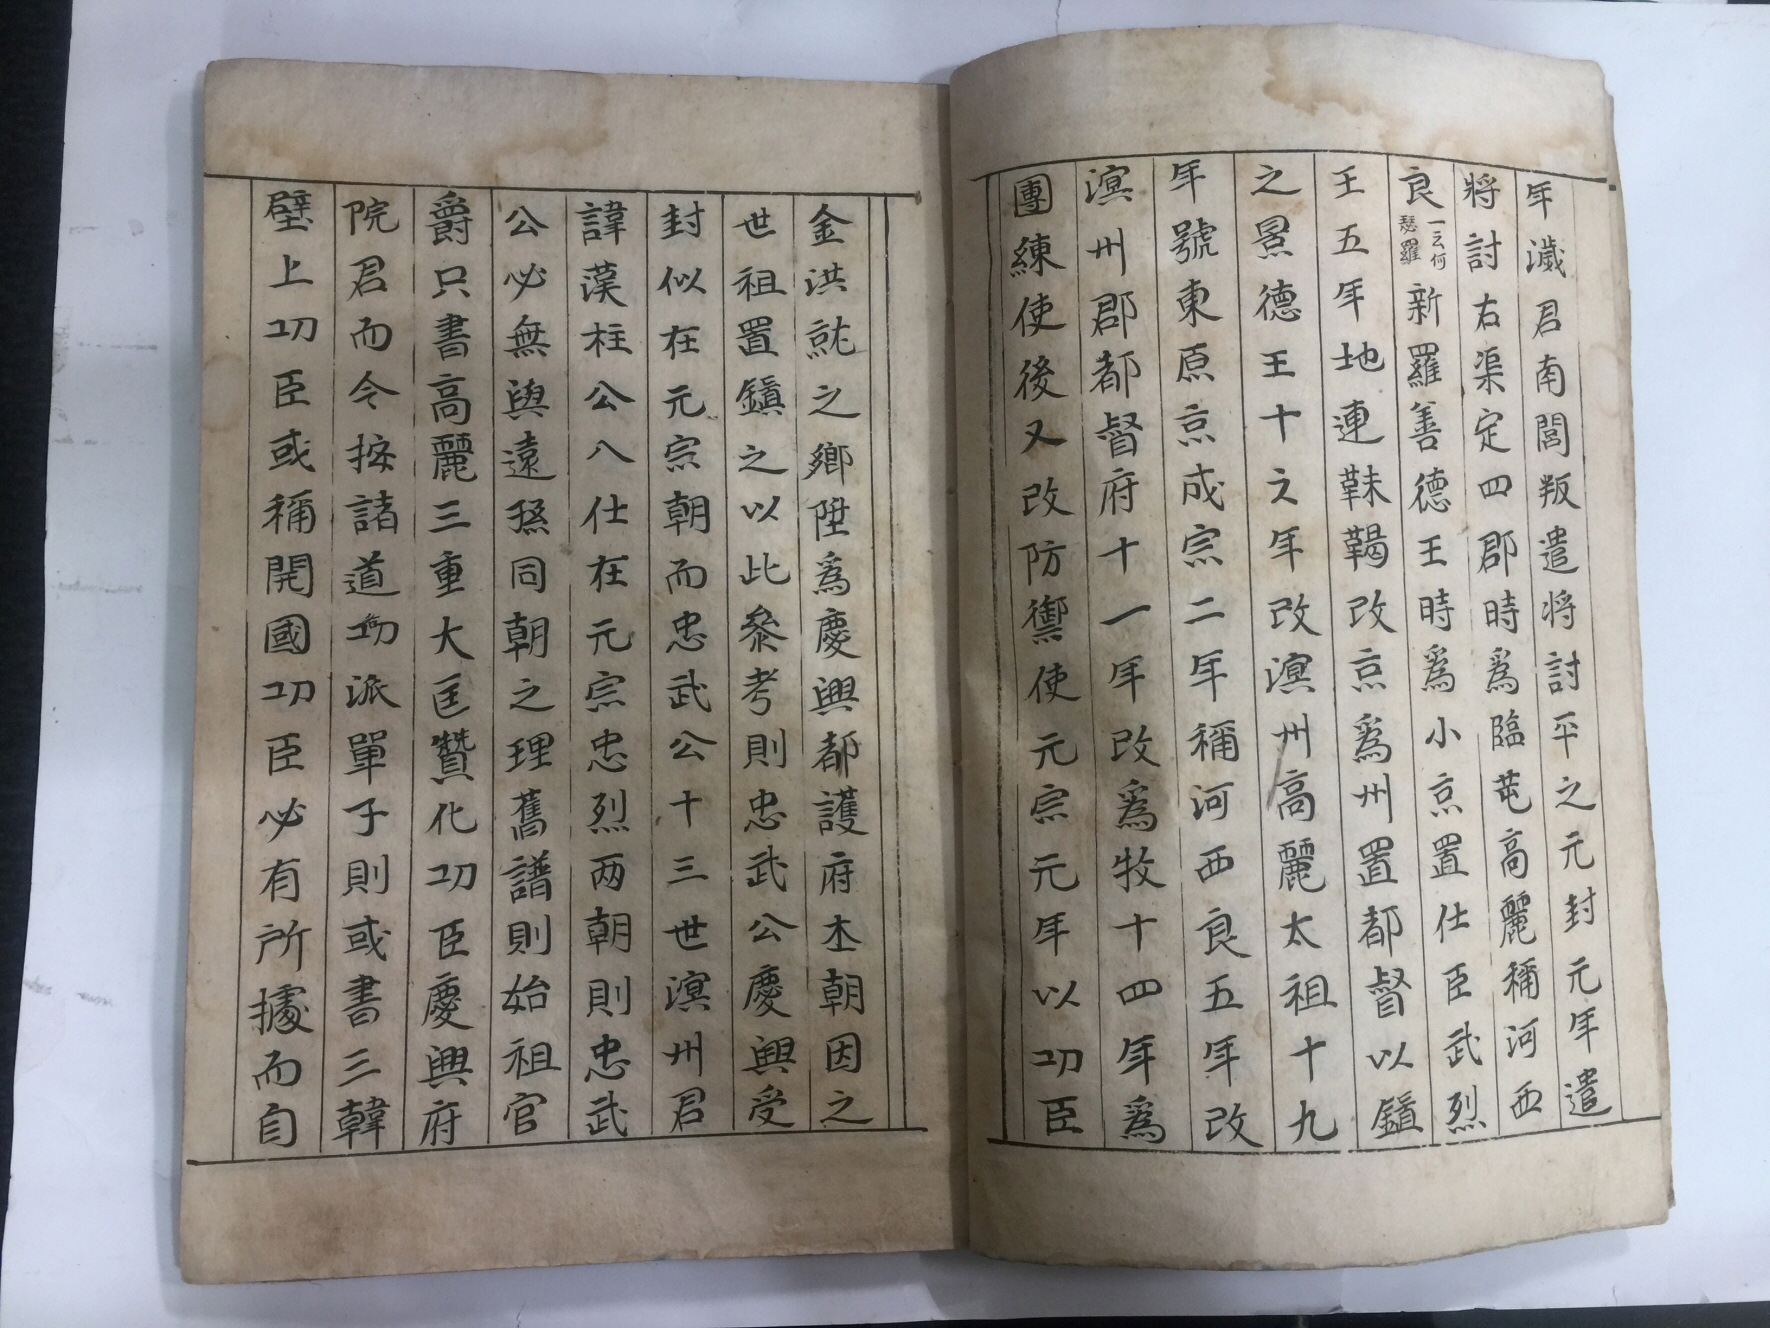 年濊君南閭叛遣将討平之元封元年遣
將討右渠定四郡時爲臨芚高麗稱河西
良一云何瑟羅新羅善德王時爲小京置仕臣武烈
王五年地連靺鞨改京爲州置都督以鎭
之景德王十六年改溟州高麗太祖十九
年號東原京成宗二年稱河西良五年改
溟州郡都督府十一年改爲牧十四年爲
團練使後又改防禦使元宗元年以功臣
金洪就之鄉陞爲慶興都護府本朝因之
世祖置鎭之以此叅考則忠武公慶興受
封似在元宗朝而忠武公十三世溟州君
諱漢柱公八仕在元宗忠烈两朝則忠武
公必無與遠孫同朝之理舊譜則始祖官
爵只書高麗三重大匡贊化功臣慶興府
院君而今按諸道功派單子則或書三韓
壁上功臣或稱開國功臣必有所據而自